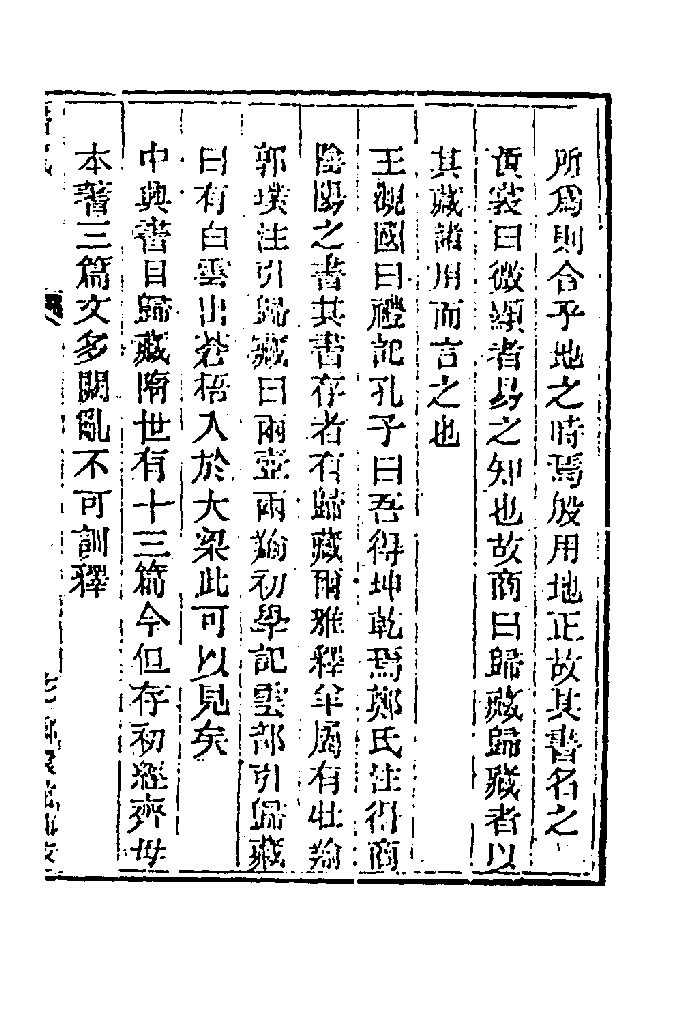 所爲則合乎地之時焉殷用地正故其書名之
黃裳曰微顯者易之知也故商曰歸藏歸藏者以
其藏諸用而言之也
王觀國曰禮記孔子曰吾得坤乾焉鄭氏注得商
陰陽之書其書存者有歸藏爾雅釋羊屬有牡羭
郭璞注引歸藏曰兩壺兩羭初學記雲部引歸藏
曰有白雲出蒼梧入於大梁此可以見矣
中興書目歸藏隋世有十三篇今但存初經齊母
本蓍三篇文多闕亂不可訓釋